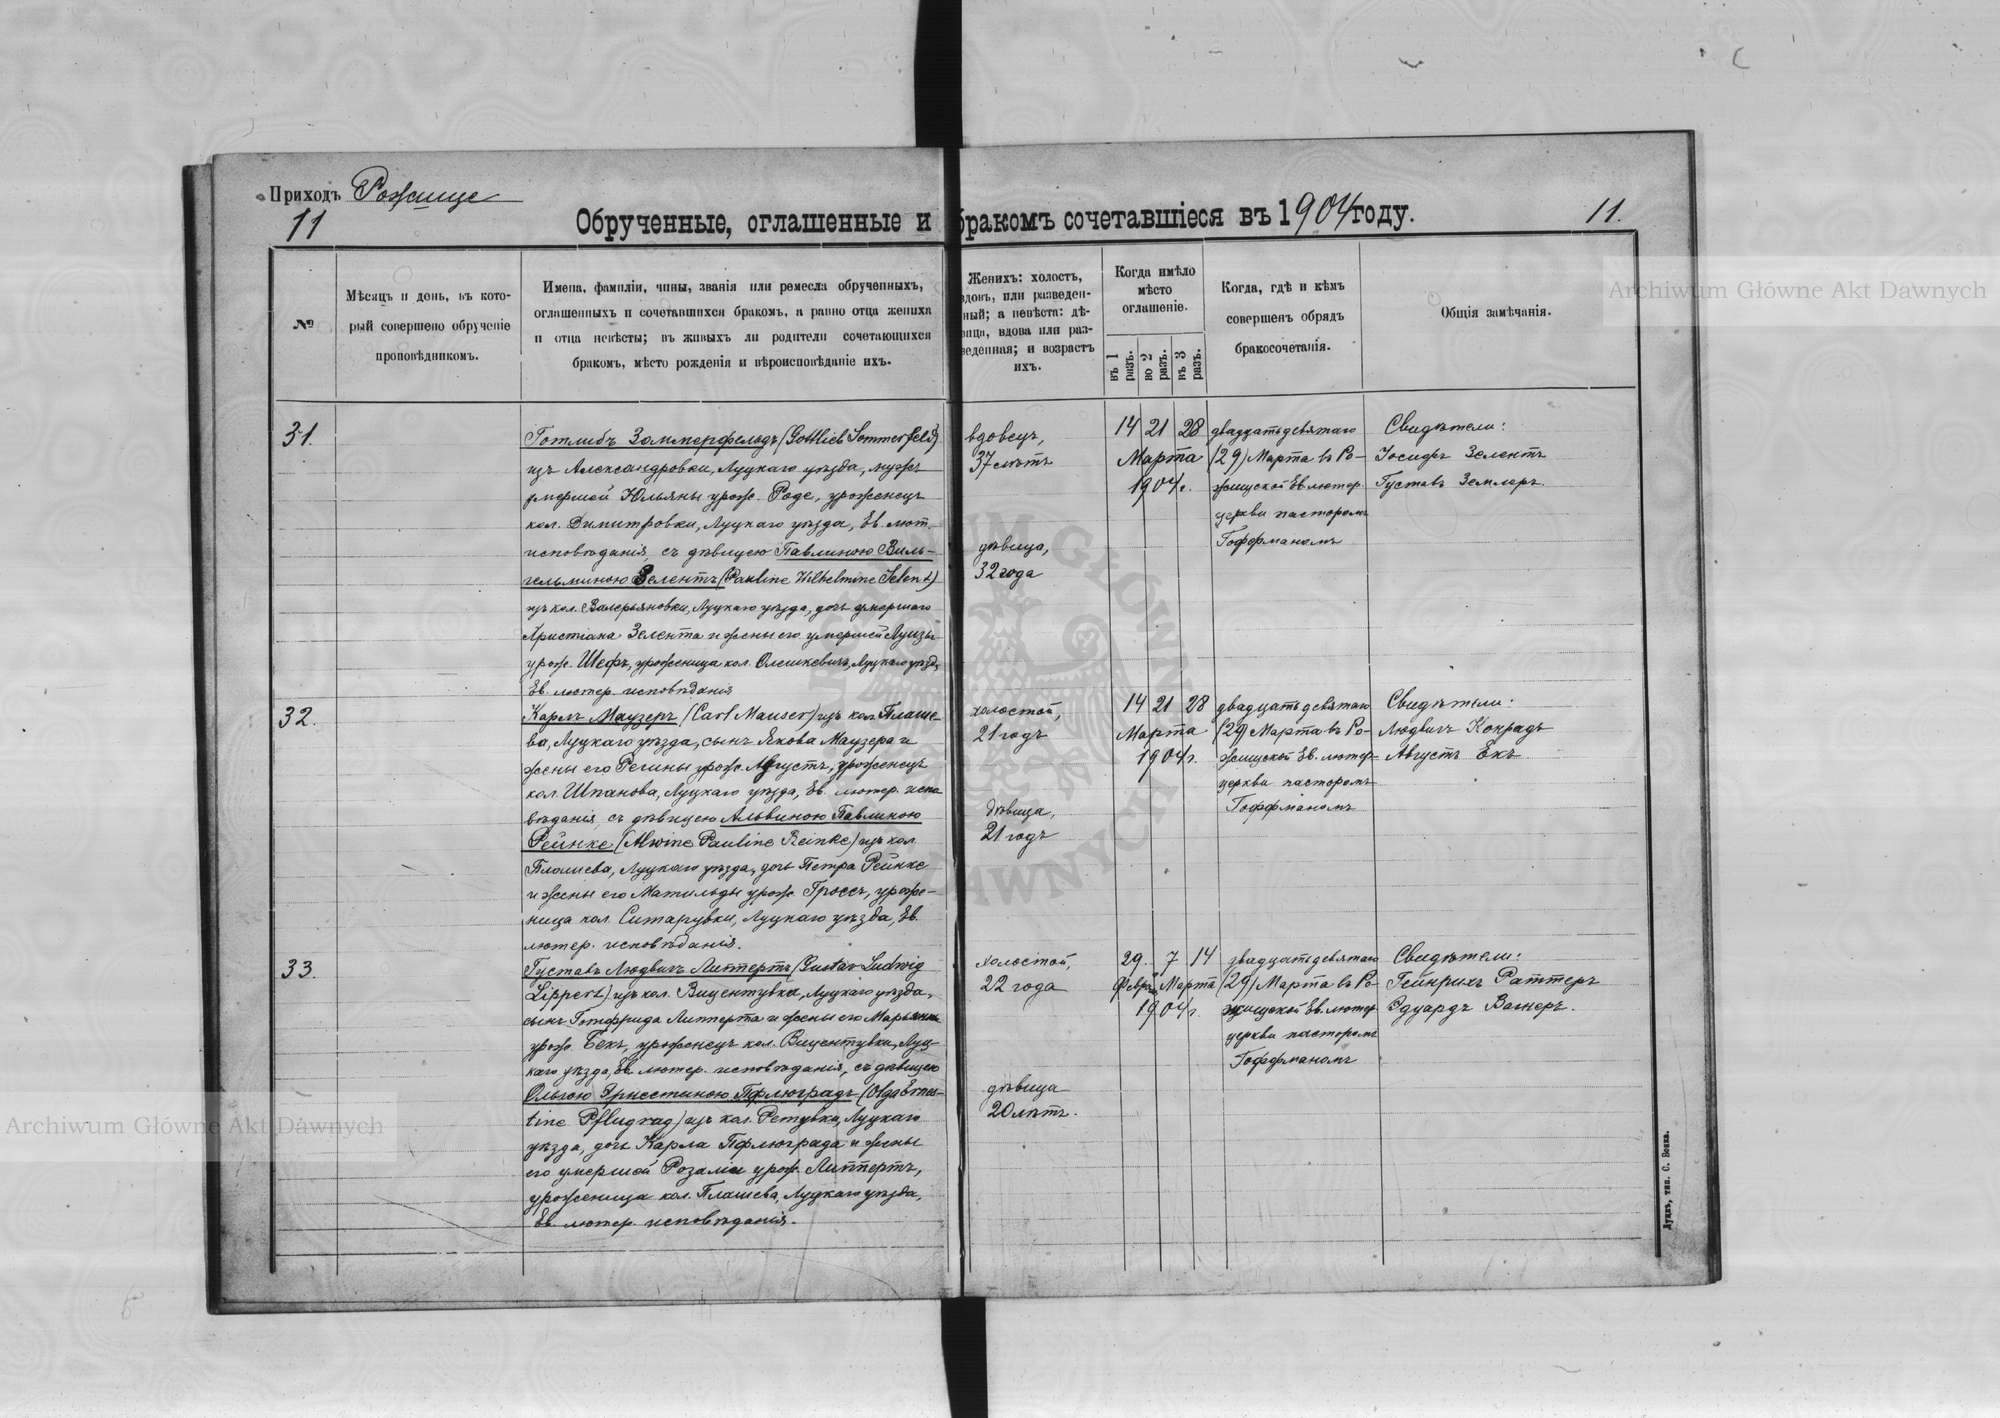 Приходъ Рожище
11
Обрученные, оглашенные и бракомъ сочетавшіеся въ 1904 году.
11.
№
Мѣсяцъ и день, въ кото-
рый совершено обрученіе
проповѣдникомъ.
Имена, фамиліи, чины, званія или ремесла обрученныхъ,
оглашенныхъ и сочетавшихся бракомъ, а равно отца жениха
и отца невѣсты; въ живыхъ ли родители сочетающихся
бракомъ, мѣсто рожденія и вѣроисповѣданіе ихъ.
Женихъ: холостъ,
вдовъ, или разведен-
ный; а невѣста: дѣ-
вица, вдова или раз-
веденная; и возрастъ
ихъ.
Когда имѣло
мѣсто
оглашеніе.
въ 1 разъ.
во 2 разъ.
въ 3 разъ.
Когда, гдѣ и кѣмъ
совершенъ обрядъ
бракосочетанія.
Общія замѣчанія.
31.
Готлибъ Зоммерфельдъ (Gottlieb Sommerfeld)
изъ Александровки, Луцкаго уѣзда, мужъ
умершей Юльяны урож. Роде, уроженецъ
кол. Димитровки, Луцкаго уѣзда, Ев. лют.
исповѣданія, съ дѣвицею Павлиною Виль-
гельминою Зелентъ (Pauline Wilhelmine Selent)
изъ кол. Валерьяновки, Луцкаго уѣзда, дочь умершаго
Христіана Зелента и жены его умершей Луизы
урож. Шефъ, уроженица кол. Олешкевичъ, Луцкаго уѣзда,
Ев. лютер. исповѣданія
вдовецъ,
37 лѣтъ
дѣвица,
32 года
14 21 28
Марта
1904 г.
двадцать девятаго
(29) Марта въ Ро-
жищской Ев. лютер.
церкви пасторомъ
Гоффманомъ
Свидѣтели:
Іосифъ Зелентъ
Густавъ Землеръ.
32.
Карлъ Маузеръ (Carl Mauser) изъ кол. Плаше-
ва, Луцкаго уѣзда, сынъ Якова Маузера и
жены его Регины урож. Августъ, уроженецъ
кол. Шпанова, Луцкаго уѣзда, Ев. лютер. испо
вѣданія, съ дѣвицею Альвиною Павлиною
Рейнке (Alwine Pauline Reinke) изъ кол.
Плошева, Луцкаго уѣзда, дочь Петра Рейнке
и жены его Матильды урож. Гроссъ, уроже-
ница кол. Ситарувки, Луцкаго уѣзда, Ев.
лютер. исповѣданія.
холостой,
21 годъ
дѣвица,
21 годъ
14 21 28
Марта
1904 г.
двадцать девятаго
(29) Марта въ Ро-
жищской Ев. лютер.
церкви пасторомъ
Гоффманомъ
Свидѣтели:
Людвигъ Конрадъ
Августъ Екъ
33.
Густавъ Людвигъ Липпертъ (Gustav Ludwig
Lippert) изъ кол. Вицентувка, Луцкаго уѣзда,
сынъ Готфрида Липперта и жены его Марьянны
урож. Бекъ, уроженецъ кол. Вицентувки, Луц
каго уѣзда, Ев. лютер. исповѣданія, съ дѣвицею
Ольгою Эрнестиною Пфлюградъ (Olga Ernes-
tine Pflugrad) изъ кол. Ретувка, Луцкаго
уѣзда, дочь Карла Пфлюграда и жены
его умершей Розаліи урож. Липпертъ,
уроженица кол. Плашева, Луцкаго уѣзда,
Ев. лютер. исповѣданія.
холостой,
22 года
дѣвица
20 лѣтъ.
29. 7 14
Февр. Марта
1904 г.
двадцать девятаго
(29) Марта въ Ро-
жищской Ев. лютер.
церкви пасторомъ
Гоффманомъ
Свидѣтели:
Гейнрихъ Раттеръ
Эдуардъ Вагнеръ.
Луцкъ, тип. С. Бокка.
Archiwum Główne Akt Dawnych
Archiwum Główne Akt Dawnych